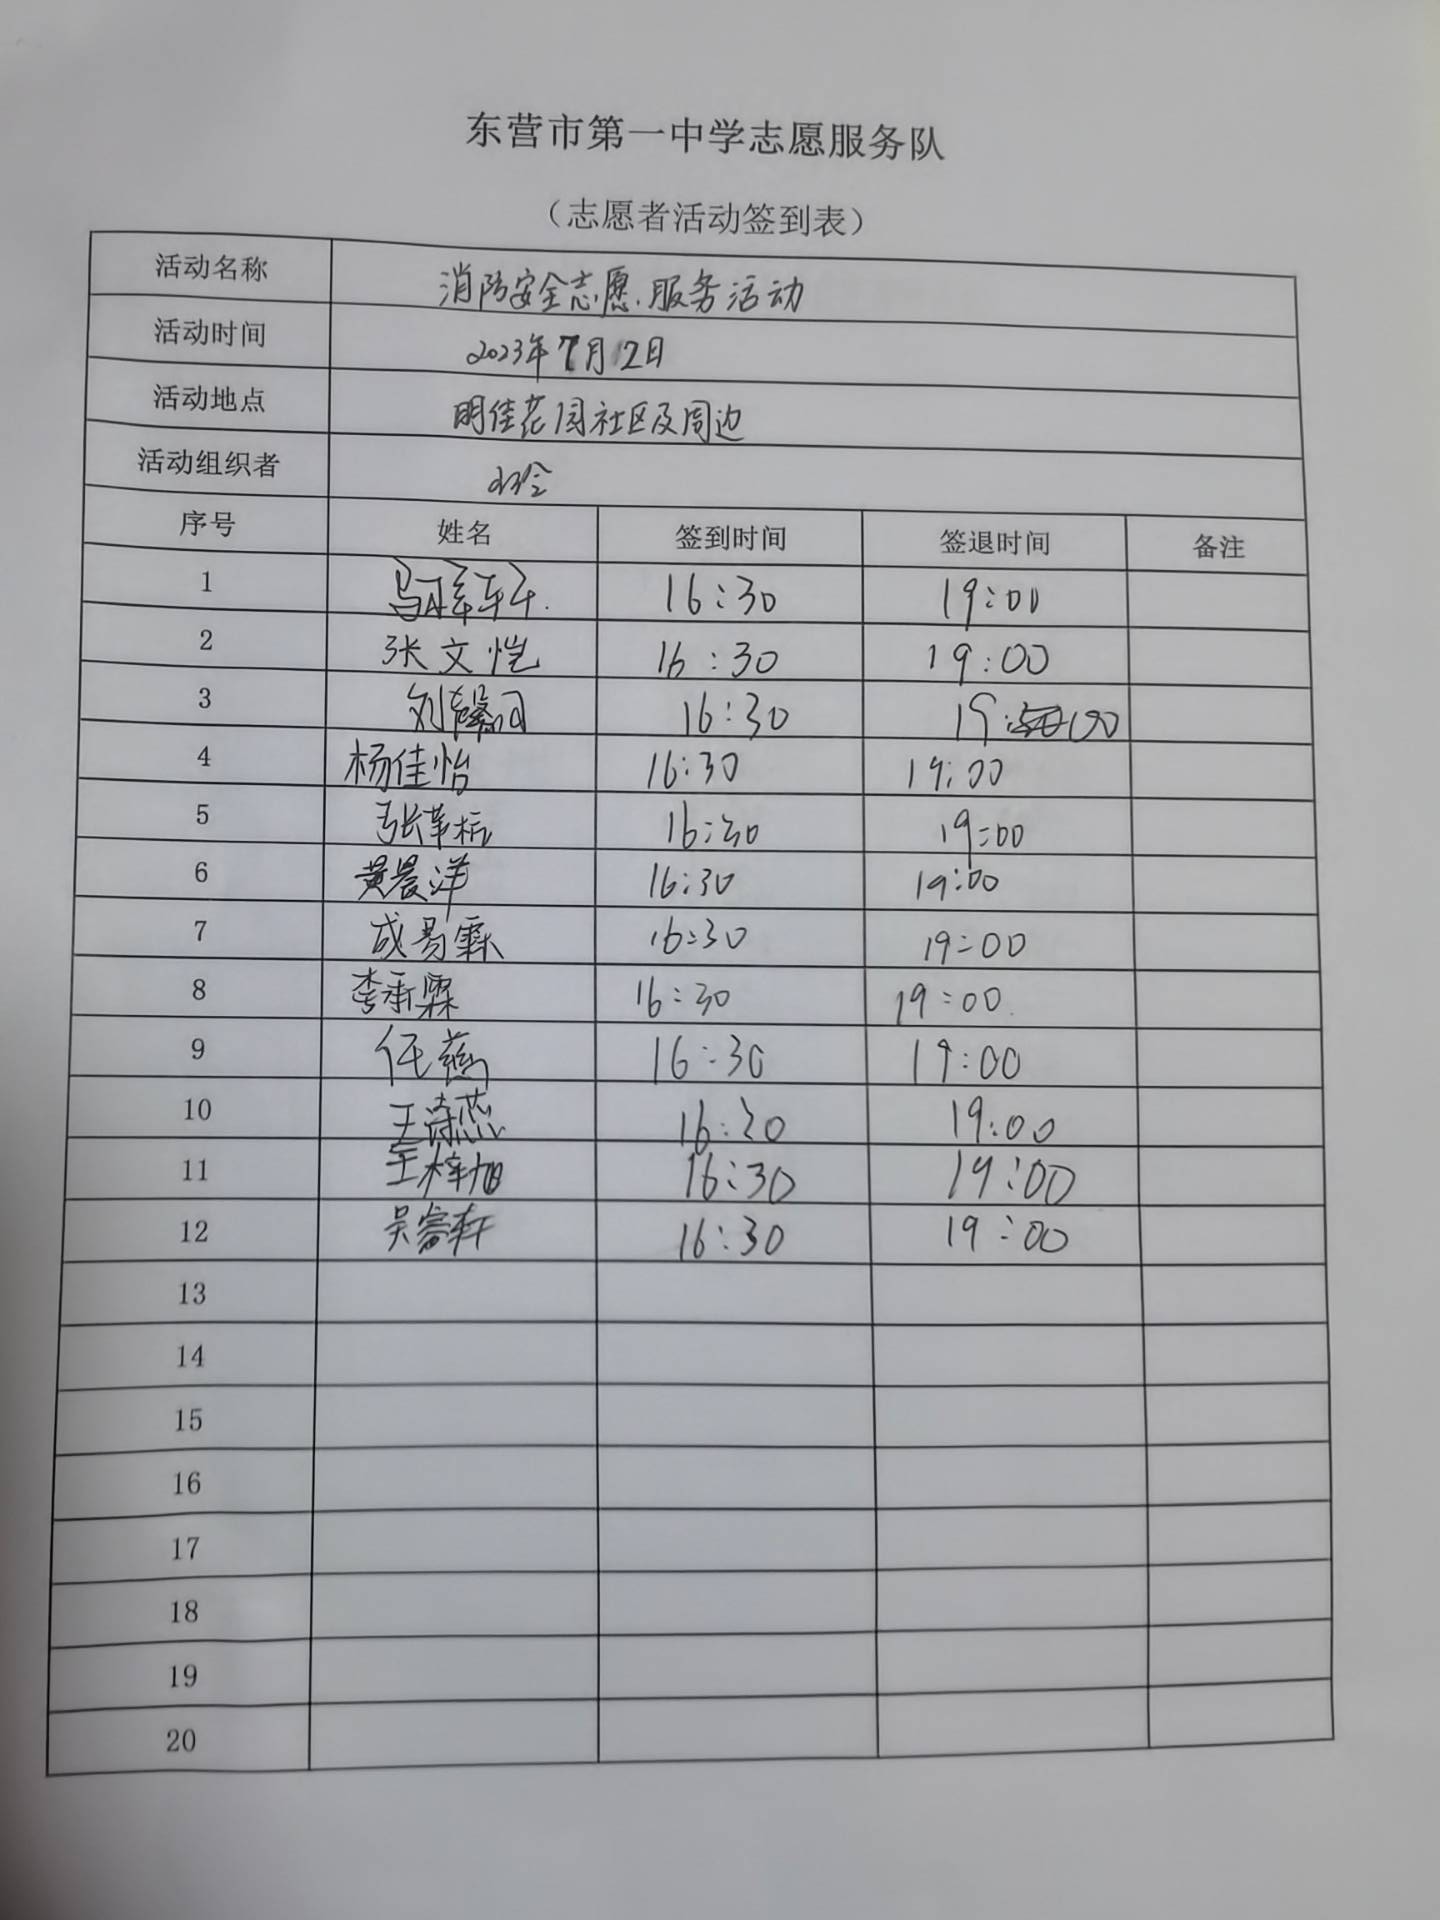 东营市第一中学志愿服务队
（志愿者活动签到表）
活动名称 消防安全志愿服务活动
活动时间 2023年7月12日
活动地点 明佳花园社区及周边
活动组织者
序号 姓名 签到时间 签退时间 备注
1 16:30 19:00
2 张文恺 16:30 19:00
3 刘馨 16:30 19:00
4 杨佳怡 16:30 19:00
5 张 16:30 19:00
6 黄晨洋 16:30 19:00
7 成易霖 16:30 19:00
8 李承霖 16:30 19:00
9 任燕 16:30 19:00
10 王 16:30 19:00
11 王梓旭 16:30 19:00
12 吴睿轩 16:30 19:00
13
14
15
16
17
18
19
20